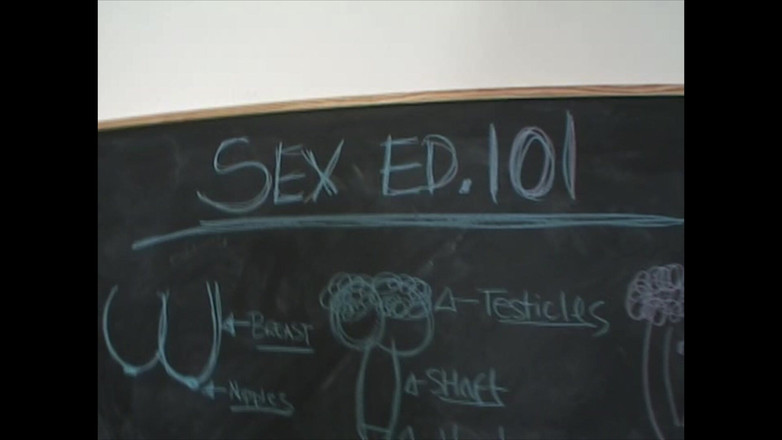 SEX ED.101
BREAST
Testicles
Nipples
SHaft